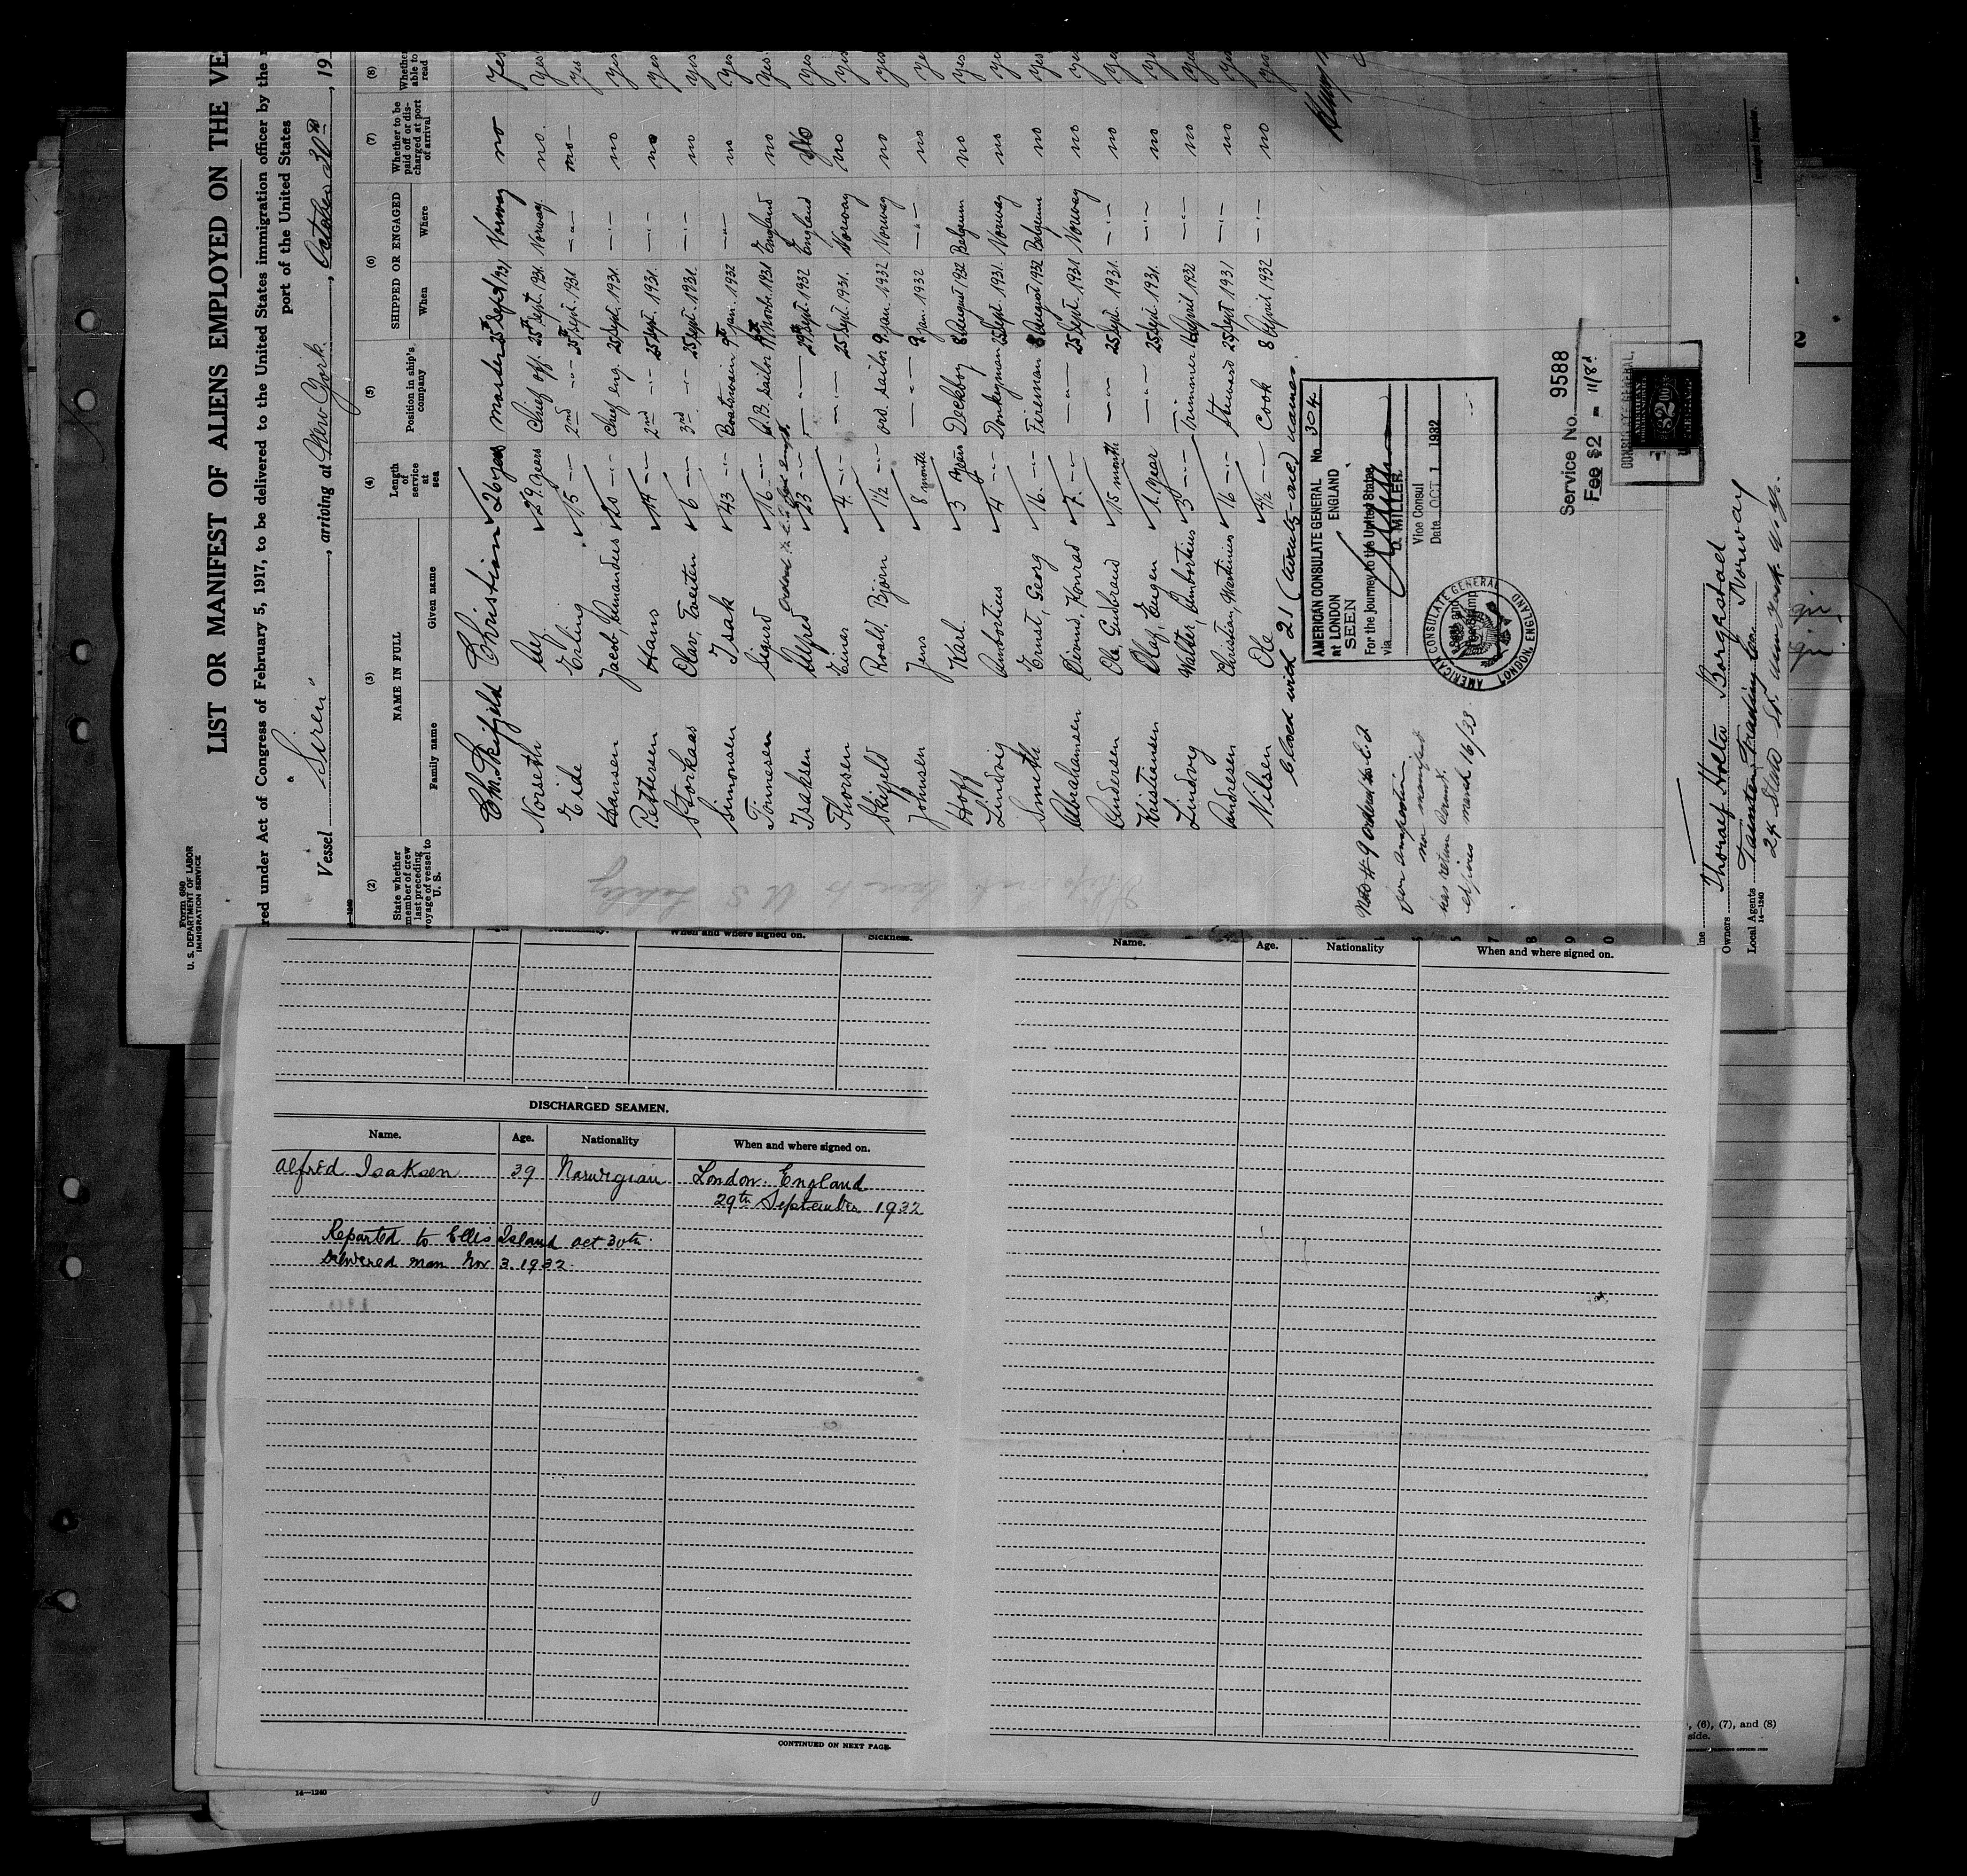 Form 680
U. S. DEPARTMENT OF LABOR
IMMIGRATION SERVICE
LIST OR MANIFEST OF ALIENS EMPLOYED ON THE VE
red under Act of Congress of February 5, 1917, to be delivered to the United States immigration officer by the
port of the United States
Vessel "Siren", arriving at New York, October 30th, 19
(2) (3) (4) (5) (6) (7) (8)
State whether member of crew last preceding voyage of vessel to U. S.
NAME IN FULL
Family name Given name
Length of service at sea
Position in ship's company
SHIPPED OR ENGAGED
When Where
Whether to be paid off or discharged at port of arrival
Whether able to read
Skifjeld Christian 26 years master 25th Sept 1931 Norway no yes
Norseth 29 years Chief off. 25th Sept. 1931 Norway. no. yes
Eide Erling 15 -- 2nd -"- 25th Sept. 1931 -"- no yes
Hansen Jacob, 20 -- Chief eng. 25 Sept. 1931 -"- no yes
Pettersen Hans 14 -- 2nd -"- 25 Sept. 1931. -"- no yes
Storkaas Olav, Evesten 6 -- 3rd -"- 25 Sept. 1931. -"- no yes
Simonsen Isak 43 -"- Boatswain 9th Jan. 1932 -"- no yes
Tonnesen Sigurd 16 -"- A.B. sailor 17 Novbr. 1931 England no yes
Isaksen Alfred 23 -"- -"- 29th Sept. 1932 England no yes
Thorsen Einar 4 -"- -"- 25 Sept. 1931. Norway no yes
Skifjeld Roald, Bjørn 1½ -- ord. sailor 9 Jan. 1932 Norway no yes
Johnsen Jens 8 month -"- 9 Jan. 1932 -"- no ye
Hoff Karl. 3 years Deckboy 8 August 1932 Belgium no yes
Lindvig Ambortius 4 -"- Donkeyman 25 Sept. 1931. Norway no yes
Smith Ernst, Georg 16 -"- Fireman 8 August 1932 Belgium no yes
Abrahamsen Konrad 7 -"- -"- 25 Sept. 1931 Norway no yes
Andersen Ole, Gudbrand 15 month -"- 25 Sept. 1931. -"- no yes
Kristiansen Olaf, Eugen 1 year -"- 25 Sept. 1931. -"- no yes
Lindvig Walter, Ambortius 3 -"- Trimmer April 1932 -"- no yes
Andresen Christian, Martinius 16 -"- Steward 25 Sept 1931 -"- no yes
Nilsen Ole 4½ -- Cook 8 April 1932 -"- no yes
Closed with 21 (twenty-one) names.
AMERICAN CONSULATE GENERAL No. 304
at LONDON ENGLAND
SEEN
For the Journey to the United States
via
D. MILLER
Vice Consul
Date OCT 1 1932
AMERICAN CONSULATE GENERAL
LONDON, ENGLAND
Service No. 9588
Fee $2 = 11/8d
CONSULATE GENERAL,
has return
expires march 16/33.
Owners Thoralf Holta Borgestad Norway
Local Agents
24 State St. New York. N.Y.
14—1240
Immigrant Inspector.
Nationality. When and where signed on. Sickness.
DISCHARGED SEAMEN.
Name. Age. Nationality When and where signed on.
Alfred Isaksen 39 Norwegian London. England
29th September 1932
Reported to Ellis Island oct 30th
Delivered man Nov 3. 1932.
CONTINUED ON NEXT PAGE.
Name. Age. Nationality When and where signed on.
7
8
9
0
, (6), (7), and (8)
side.
14—1240